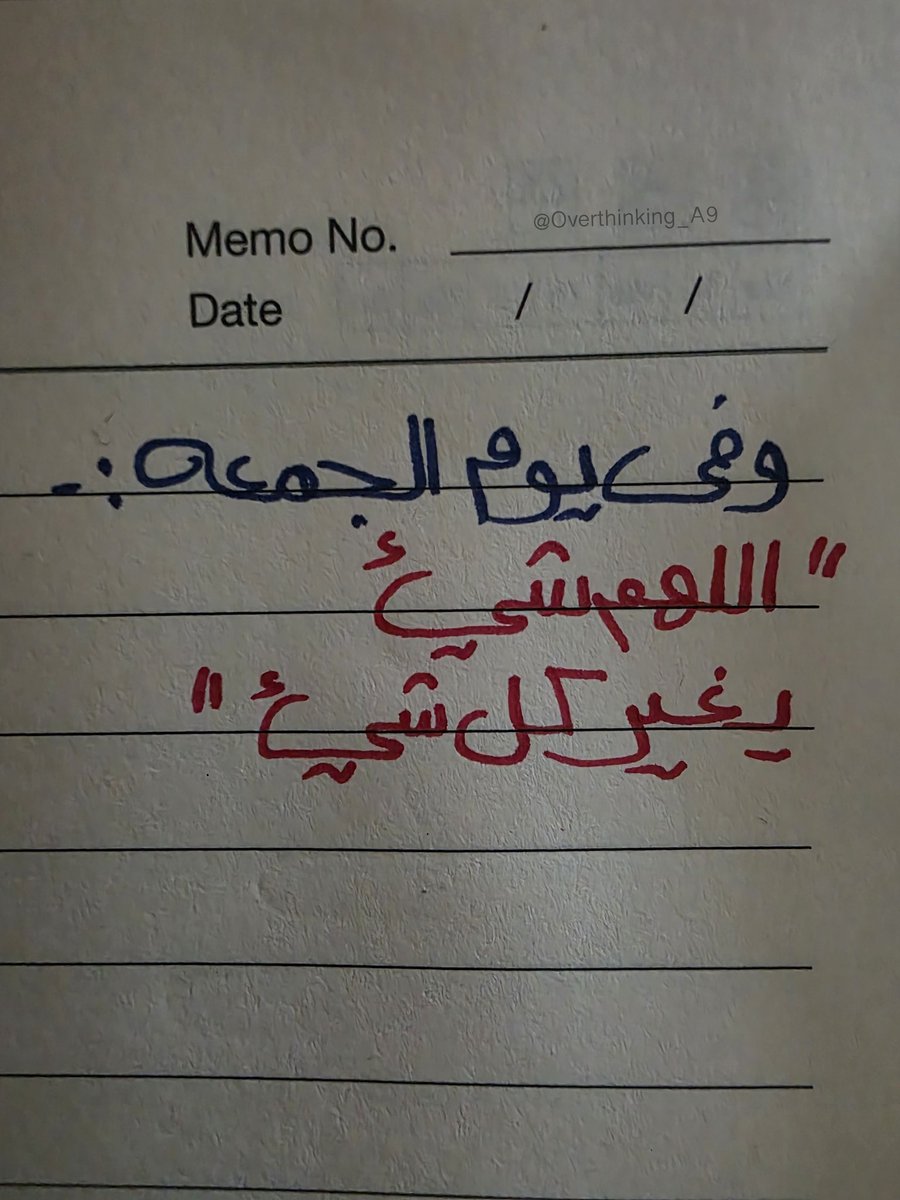 @Overthinking_A9
Memo No.
Date / /
وفى يوم الجمعه :-
" اللهم شيئ
يغير كل شيئ "